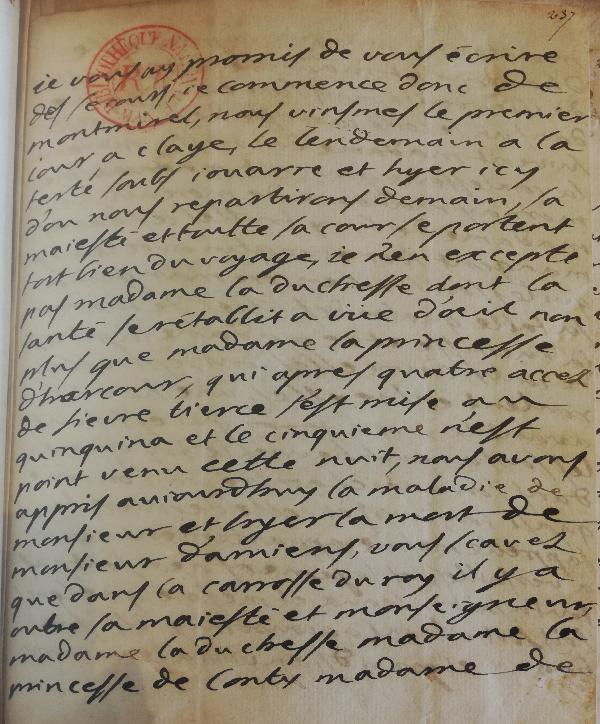 237
BIBLIOTHEQUE NA
ie vous ay promis de vous écrire
des ie commence donc de
montmirel, nous vinsmes le premier
iour a claye, le lendemain a la
ferté soubs iouarre et hyer icy
d'ou nous repartirons demain, sa
maiesté et toutte sa cour se portent
fort bien du voyage, ie n'en excepte
pas madame la duchesse dont la
santé se rétablit a viie d'oeil non
plus que madame la princesse
d'harcour, qui apres quatre accez
de fievre tierce s'est mise au
quinquina et le cinquieme n'est
point venu cette nuit, nous avons
appris auiourdhuy la maladie de
monsieur et hyer la mort de
monsieur d'amiens, vous scavez
que dans la carrosse du roy il y a
outre sa maiesté et monseigneur,
madame la duchesse madame la
princesse de Conty madame de